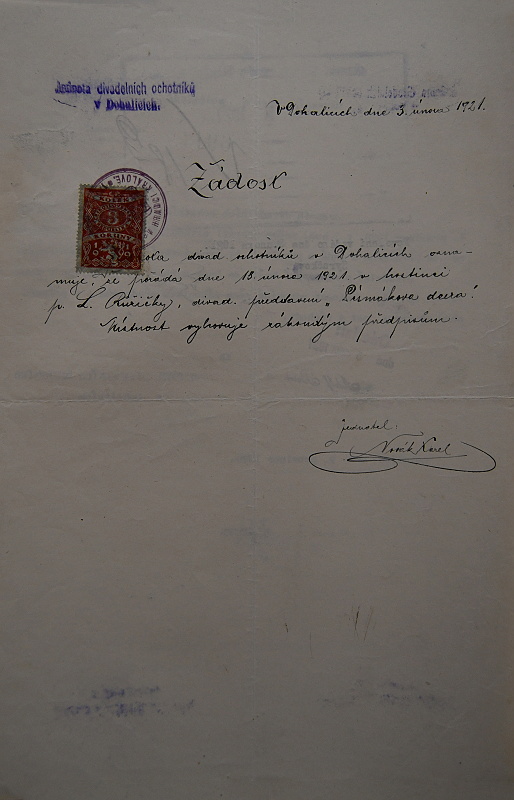 Jednota divadelních ochotníků
v Dohalicích.
V Dohalicích dne 3. února 1921.
Žádost
3
KORUNY
divad ochotníků v Dohalicích ozna-
muje, že pořádá dne 13. února 1921 v hostinci
p. L. Růžičky, divad. představení „Písmákova dcera".
Místnost vyhovuje zákonitým předpisům.
jednatel:
Novák Karel